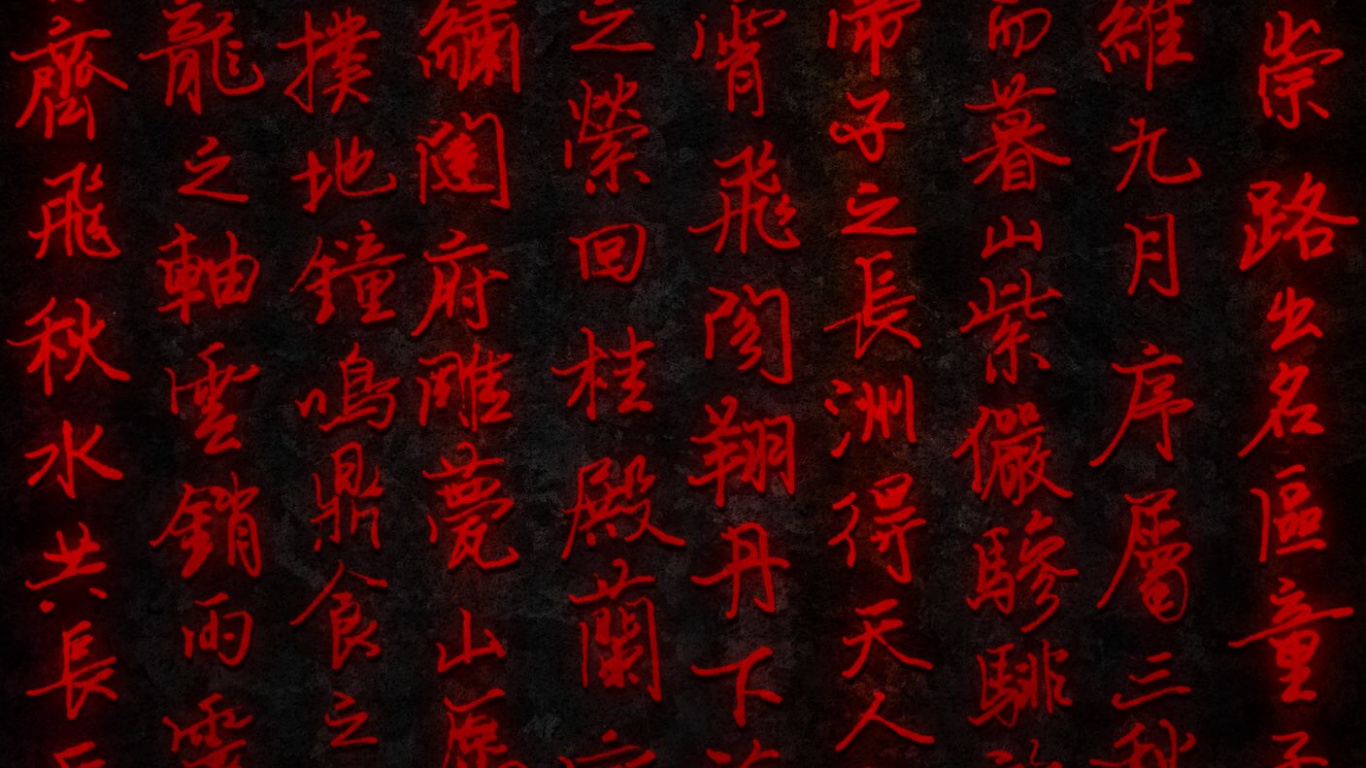 崇路出名區童
維九月序屬三秋
而暮山紫儼驂騑
帝子之長洲得天人
霄飛閣翔丹下
之縈回桂殿蘭
繡闥府雕甍山原
撲地鐘鳴鼎食之
龍之軸雲銷雨
齊飛秋水共長